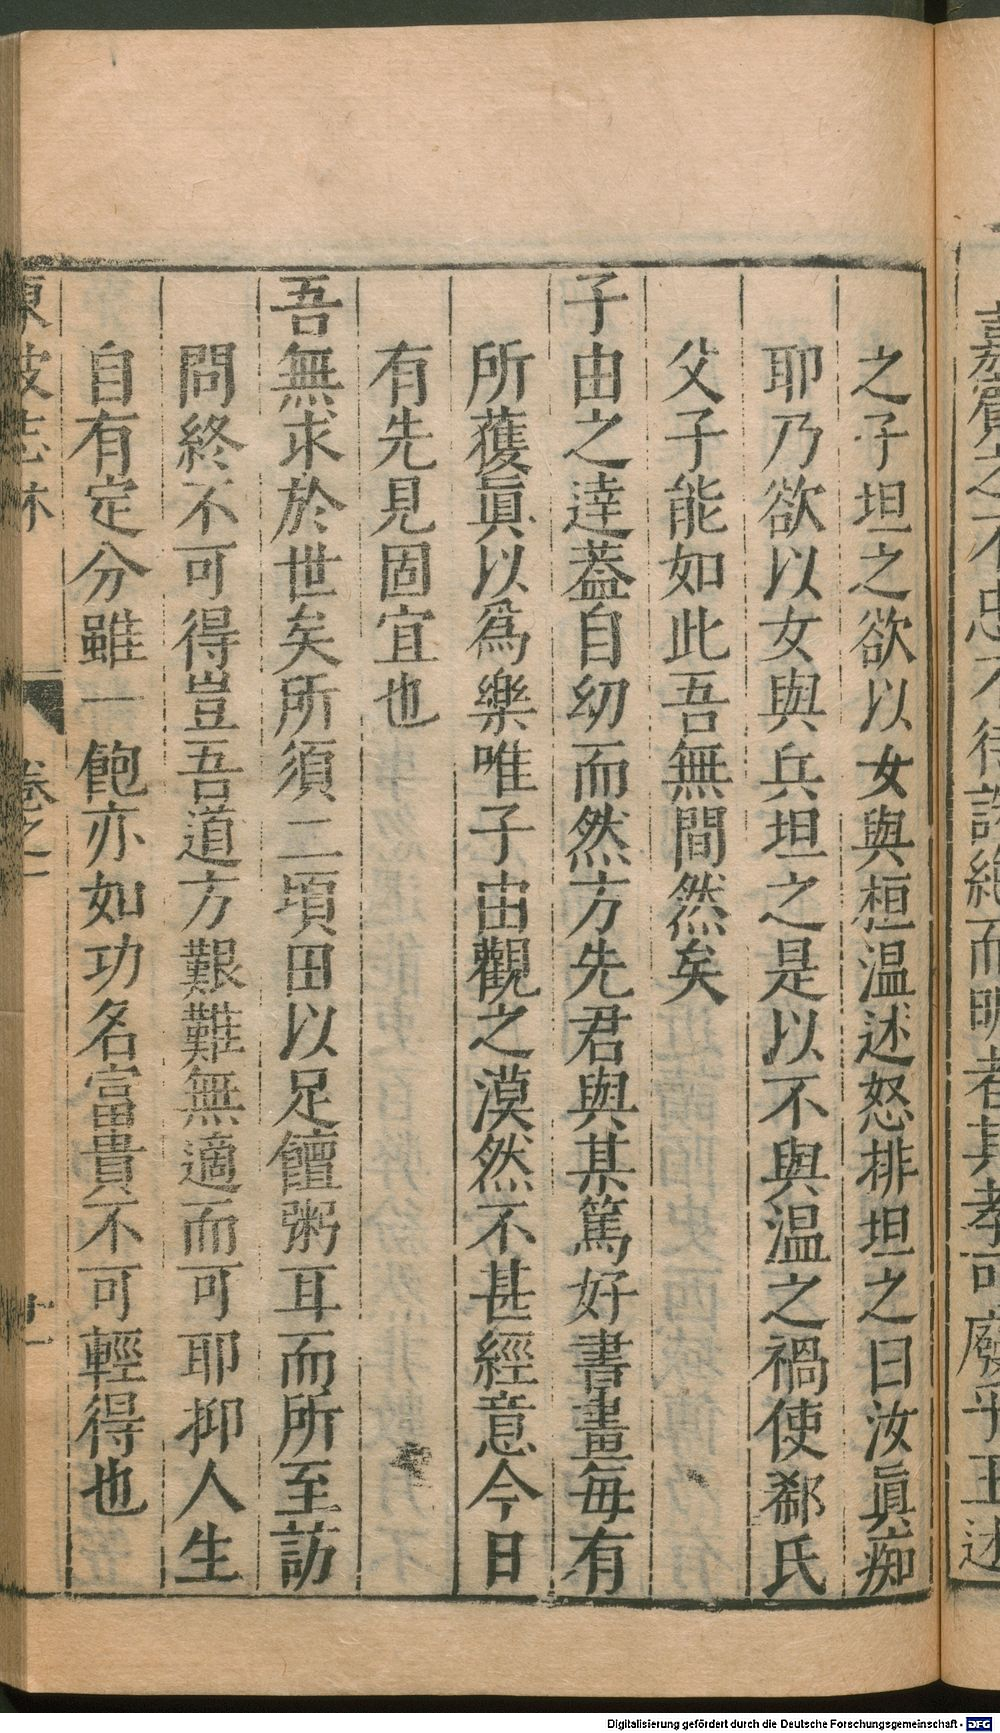 嘉賓之不忠不待誅絶而明者其孝可廢乎王述
之子坦之欲以女與桓温述怒排坦之曰汝眞痴
耶乃欲以女與兵坦之是以不與温之禍使郗氏
父子能如此吾無間然矣
子由之達葢自幼而然方先君與某篤好書畫每有
所獲眞以爲樂唯子由觀之漠然不甚經意今日
有先見固宜也
吾無求於世矣所須二頃田以足饘粥耳而所至訪
問終不可得豈吾道方艱難無適而可耶抑人生
自有定分雖一飽亦如功名富貴不可輕得也
東坡志林 卷之一
Digitalisierung gefördert durch die Deutsche Forschungsgemeinschaft - DFG